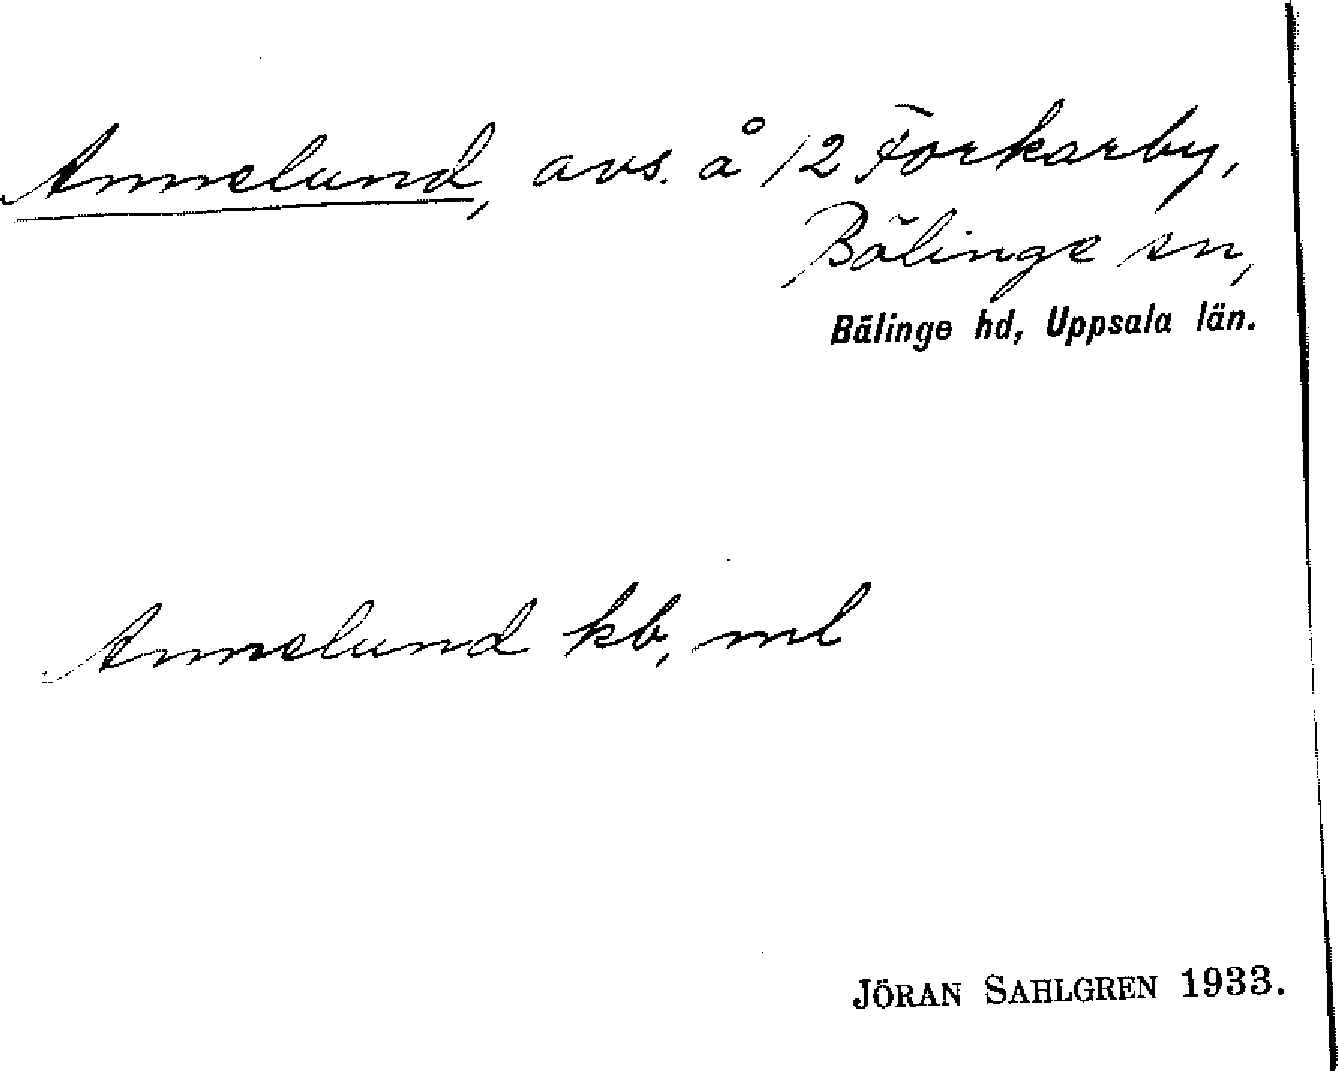 Annelund, avs. å 12 Forkarby,
Bälinge sn,
Bälinge hd, Uppsala län.
Annelund kb, ml
JÖRAN SAHLGREN 1933.